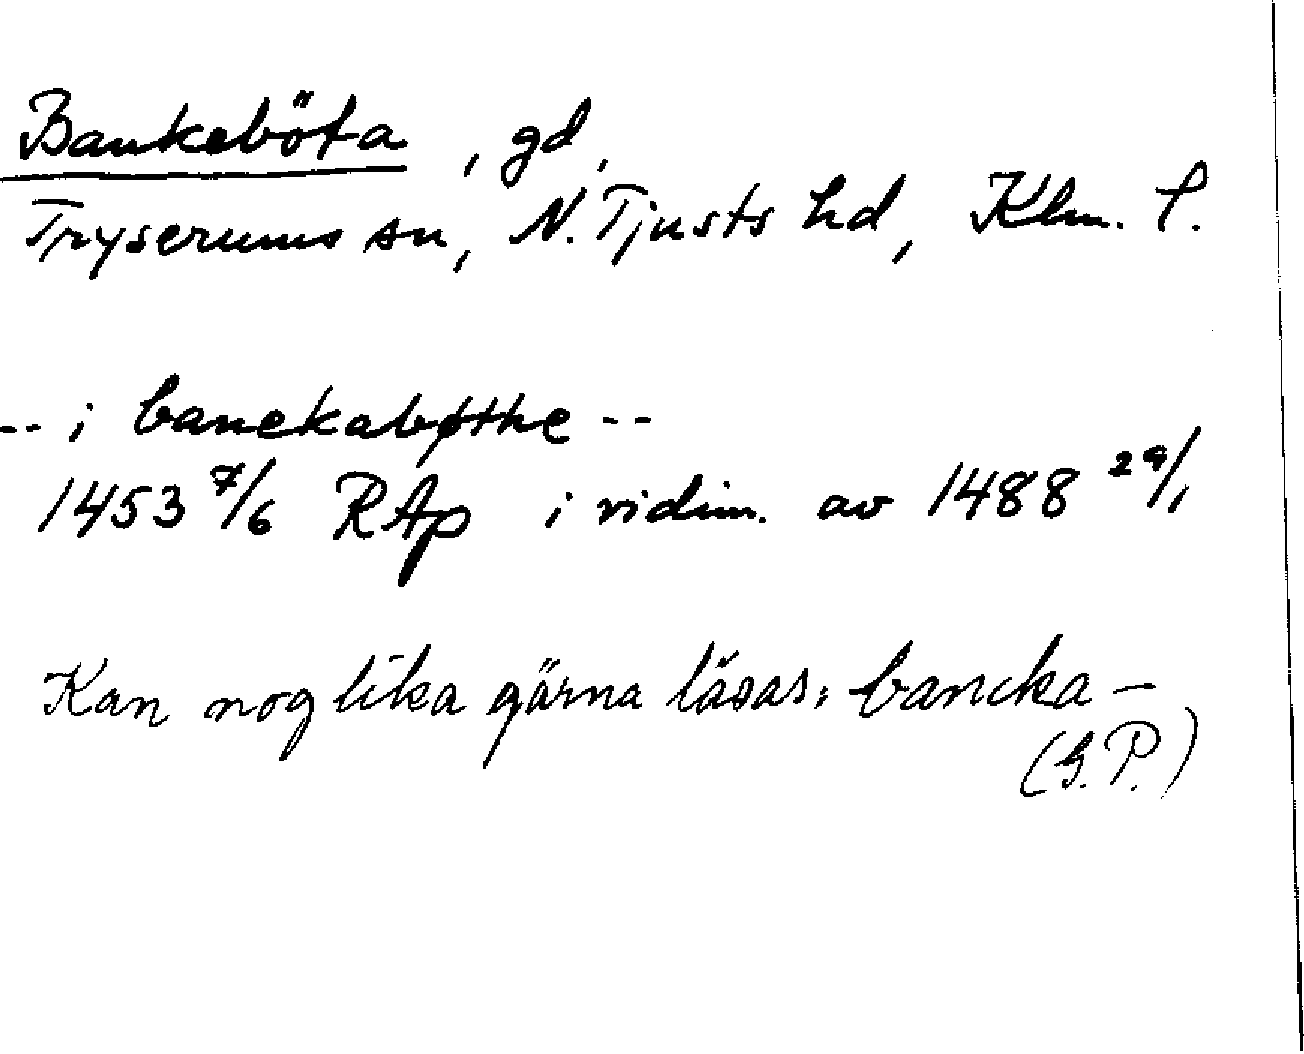 Bankeböta, gd,
Tryserums sn, N. Tjusts hd, Klm. l.
-- i banekabøthe --
1453 7/6 RAp i vidim. av 1488 29/1
Kan nog lika gärna läsas: bancka-
(G.P.)